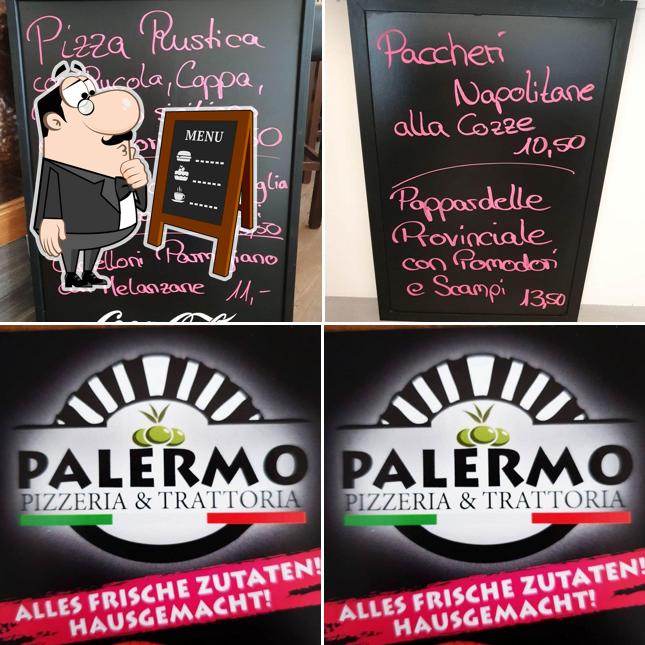 Pizza Rustica
Rucola, Coppa,
MENU
Parmigiano
Melanzane 11,-
Paccheri
Napolitane
alla Cozze
10,50
Pappardelle
Provinciale
con Pomodori
e Scampi 13,50
PALERMO
PIZZERIA & TRATTORIA
ALLES FRISCHE ZUTATEN!
HAUSGEMACHT!
PALERMO
PIZZERIA & TRATTORIA
ALLES FRISCHE ZUTATEN!
HAUSGEMACHT!